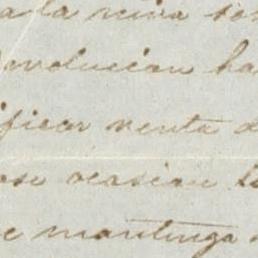 a la mina
evolucion ha
ificar venta d
ocasion
e mantenga